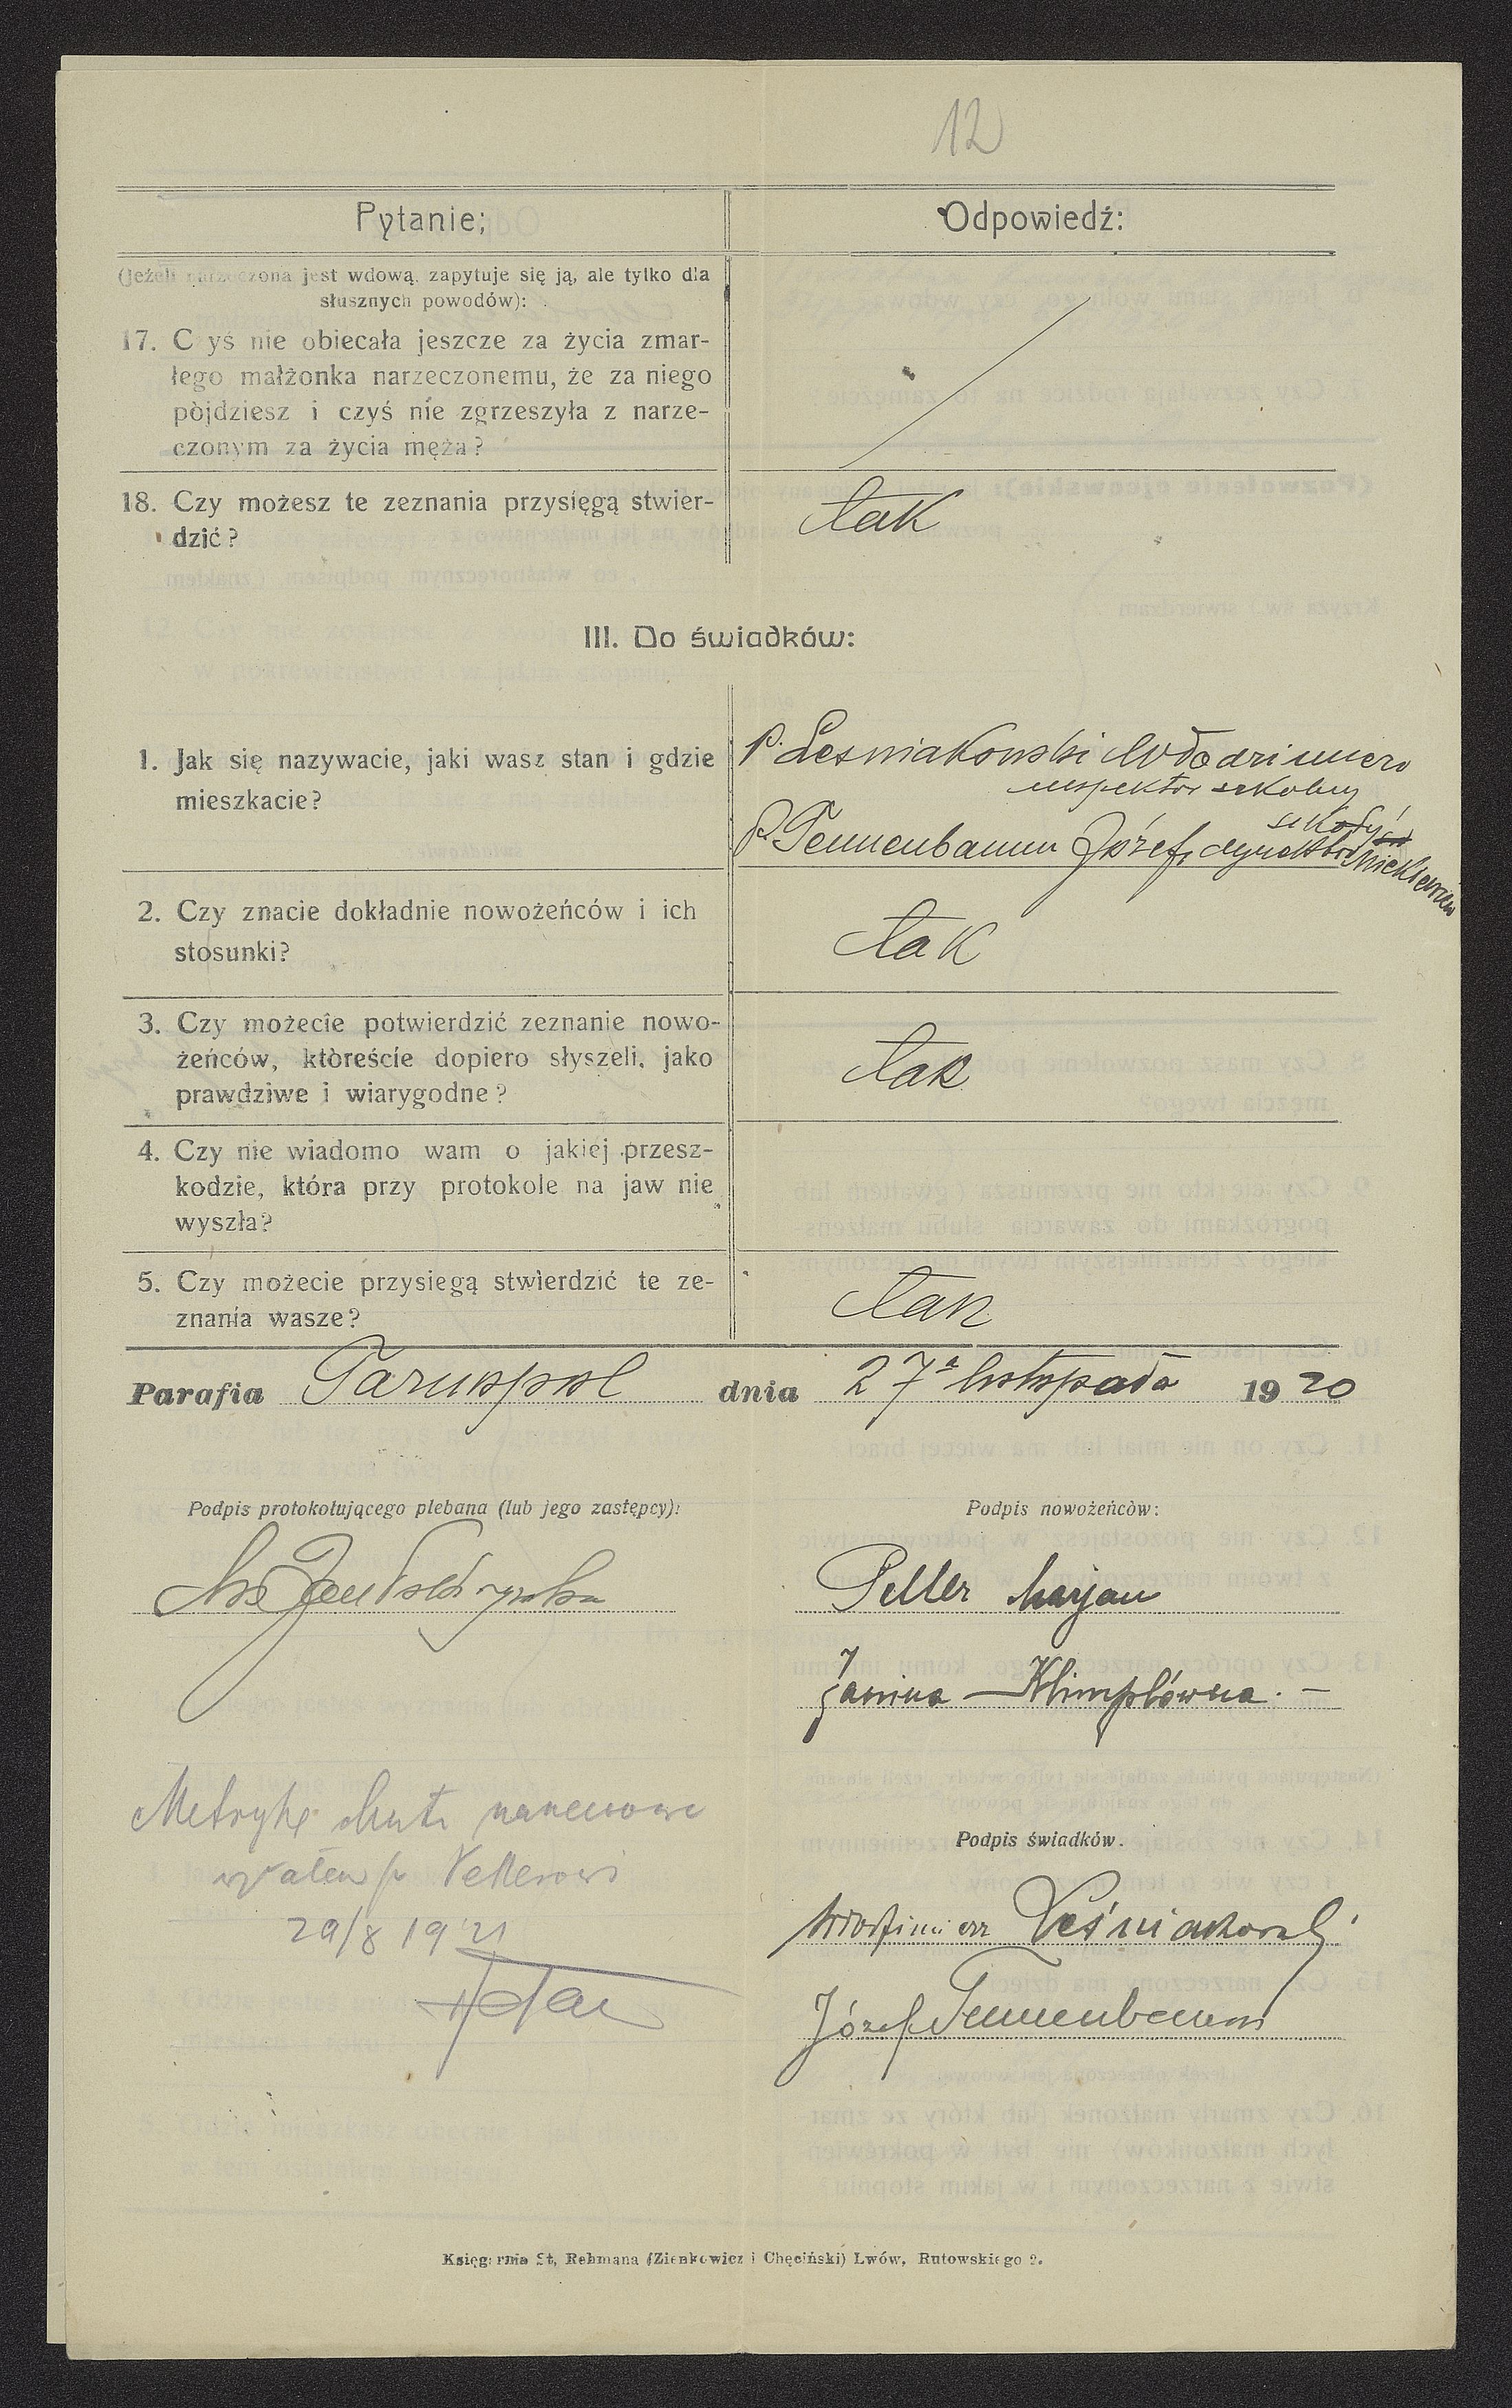 12
Pytanie;
Odpowiedź:
(Jeżeli narzeczona jest wdową, zapytuje się ją, ale tylko dla
słusznych powodów):
17. Czyś nie obiecała jeszcze za życia zmar-
łego małżonka narzeczonemu, że za niego
pòjdziesz i czyś nie zgrzeszyła z narze-
czonym za życia męża?
18. Czy możesz te zeznania przysięgą stwier-
dzić?
tak
III. Do świadków:
1. Jak się nazywacie, jaki wasz stan i gdzie
mieszkacie?
P. Leśniakowski Włodzimierz
inspektor szkolny
P. Tennenbaum Józef, dyrektor
szkoły
Mickiewicza
2. Czy znacie dokładnie nowożeńców i ich
stosunki?
tak
3. Czy możecie potwierdzić zeznanie nowo-
żeńców, któreście dopiero słyszeli, jako
prawdziwe i wiarygodne?
tak
4. Czy nie wiadomo wam o jakiej przesz-
kodzie, która przy protokole na jaw nie
wyszła?
5. Czy możecie przysiegą stwierdzić te ze-
znania wasze?
tak
Parafia Tarnopol dnia 27 listopada 1920
Podpis protokołującego plebana (lub jego zastępcy):
Podpis nowożeńców:
Peller Marjan
Janina Klimplówna. —
Metrykę
29/8 1921
Podpis świadków.
Włodzimierz Leśniakowski
Józef Tennenbaum
Księgarnia St, Rehmana (Zienkowicz i Chęciński) Lwów, Rutowskiego 9.